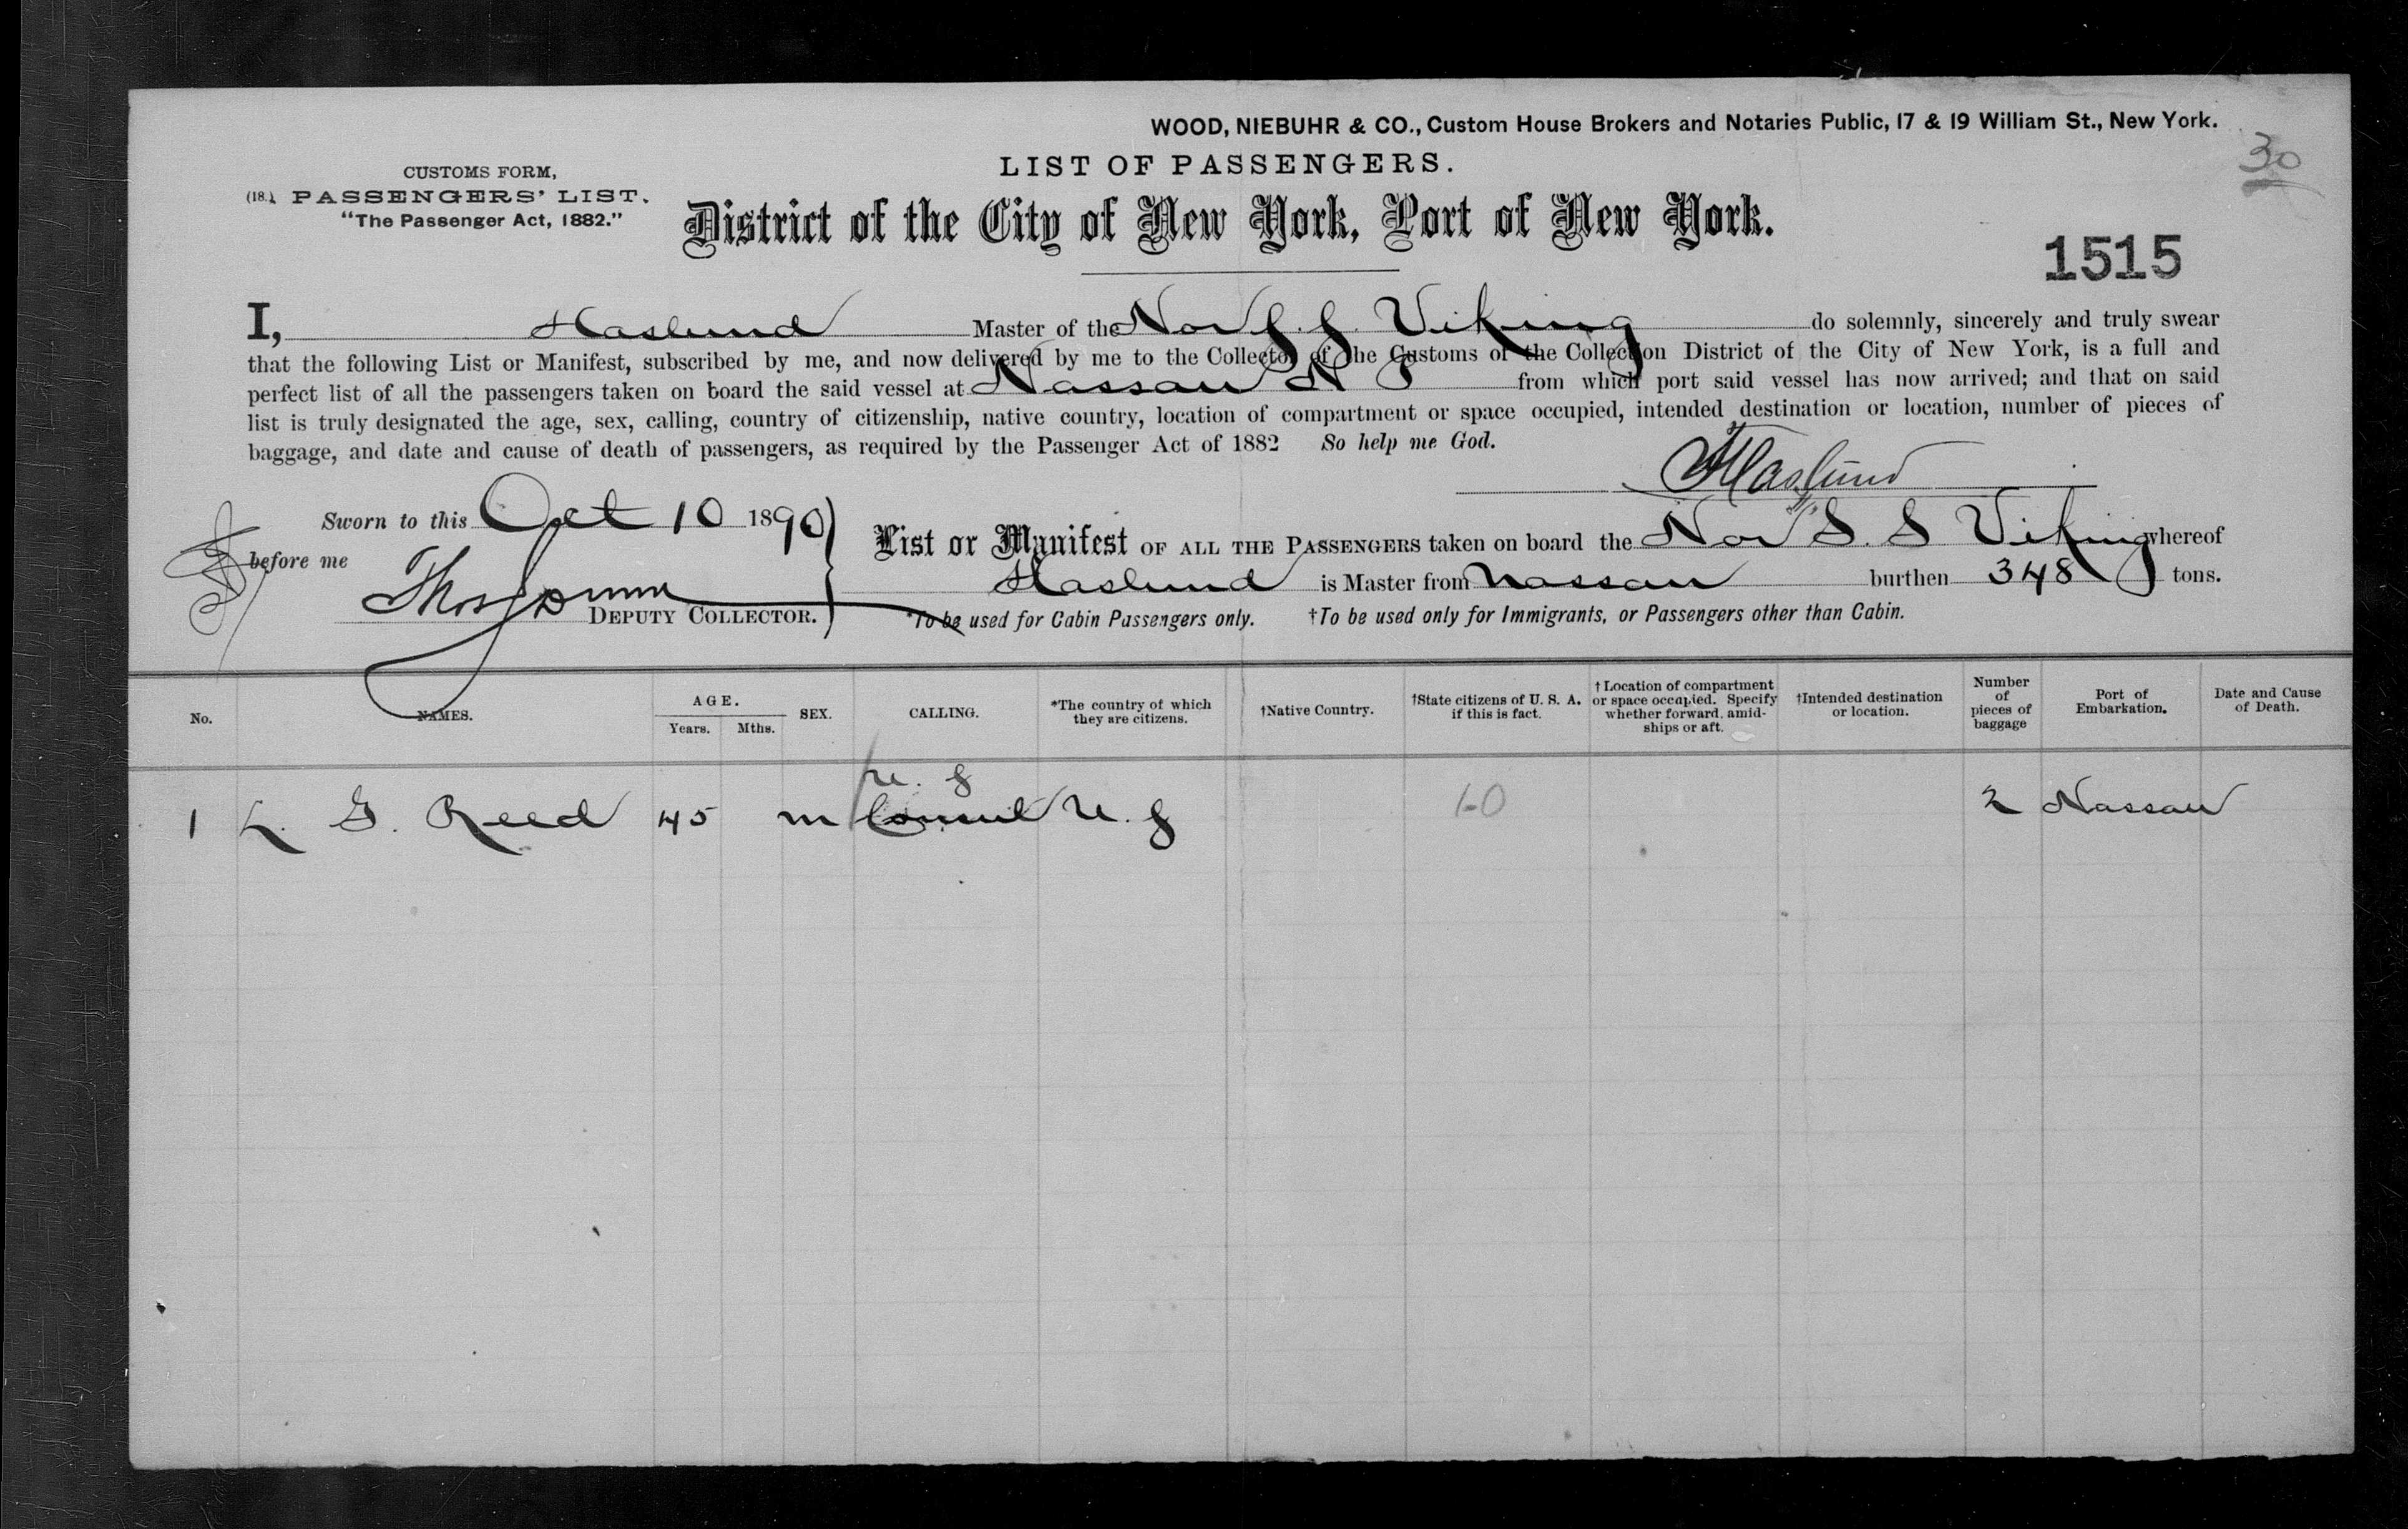 WOOD, NIEBUHR & CO., Custom House Brokers and Notaries Public, 17 & 19 William St., New York.
30
LIST OF PASSENGERS.
CUSTOMS FORM,
(18.) PASSENGERS' LIST.
"The Passenger Act, 1882."
District of the City of New York, Port of New York.
1515
I, Haslund Master of the Nor S. S. Viking do solemnly, sincerely and truly swear
that the following List or Manifest, subscribed by me, and now delivered by me to the Collector of the Customs of the Collection District of the City of New York, is a full and
perfect list of all the passengers taken on board the said vessel at Nassau N P from which port said vessel has now arrived; and that on said
list is truly designated the age, sex, calling, country of citizenship, native country, location of compartment or space occupied, intended destination or location, number of pieces of
baggage, and date and cause of death of passengers, as required by the Passenger Act of 1882 So help me God.
Haslund
Sworn to this Oct 10 1890
before me
Thos
DEPUTY COLLECTOR.
List or Manifest OF ALL THE PASSENGERS taken on board the Nor S. S Viking whereof
Haslund is Master from Nassau burthen 348 tons.
*To be used for Cabin Passengers only. †To be used only for Immigrants, or Passengers other than Cabin.
No. NAMES. AGE. Years. Mths. SEX. CALLING. *The country of which they are citizens. †Native Country. †State citizens of U. S. A. if this is fact. †Location of compartment or space occupied. Specify whether forward, amidships or aft. †Intended destination or location. Number of pieces of baggage Port of Embarkation. Date and Cause of Death.
U. S
1 L. G. Reed 45 m Consul U. S 2 Nassau